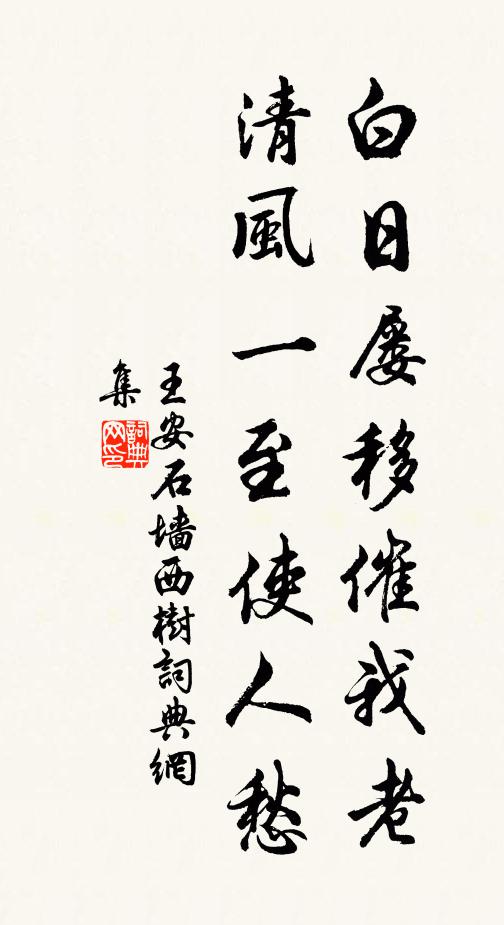 白日屡移催我老
清風一至使人愁
王安石墙西樹詞典網
集
詞典
网印